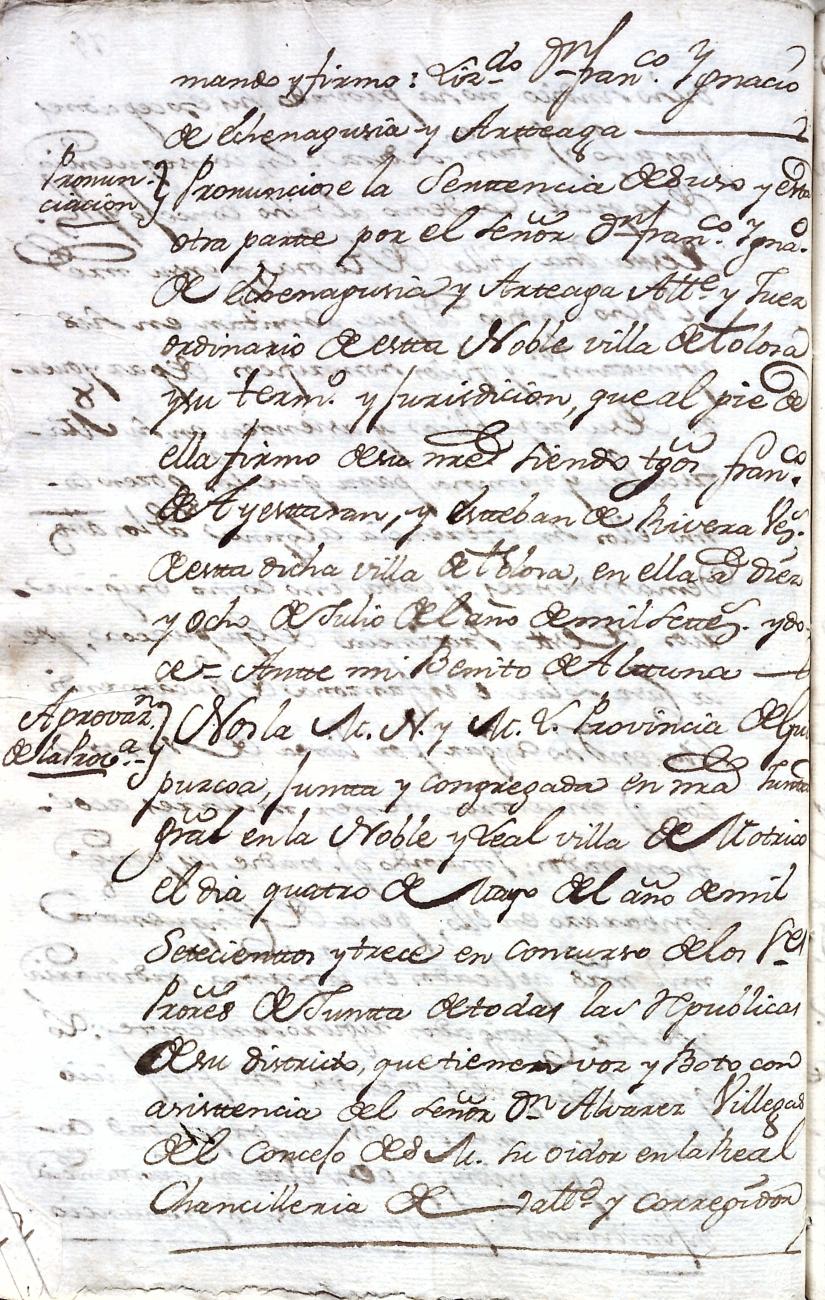 mando y firmo: Liz.do Dn fran.co Ygnacio
de Echenagusia y Arteaga
Pronun-
ciacion
Pronunciose la Sentencia de suso y esta
otra parte por el señor Dn fran.co Ygna.o
de Echenagusia y Arteaga Alle. y Juez
ordinario de estta Noble villa de tolosa
y su term.o y Jurisdicion, que al pie de
ella firmo de su nre siendo tgos fran.co
de Ayesttaran, y Esteban de Rivera Vez.s
de estta dicha villa de tolosa, en ella a diez
y ocho de Julio del año de mil settez.s y do-
ce = Antte mi Benito de Alttuna
Aprovaz.n
de la Prov.a
Nos la M. N. y M. L. Provincia de Gui
puzcoa, Juntta y congregada en nra Junta
gral en la Noble y Leal villa de Motrico
el dia quatro de Mayo del año de mil
Setecienttos y trece en concurso de los Ses
Prores de Juntta de todas las Republicas
de su districto, que tienen voz y Boto con
asisttencia del señor Dn Alvarez Villegas
del Consejo de S M. su oidor en la Real
Chancilleria de Vall.d y corregidor